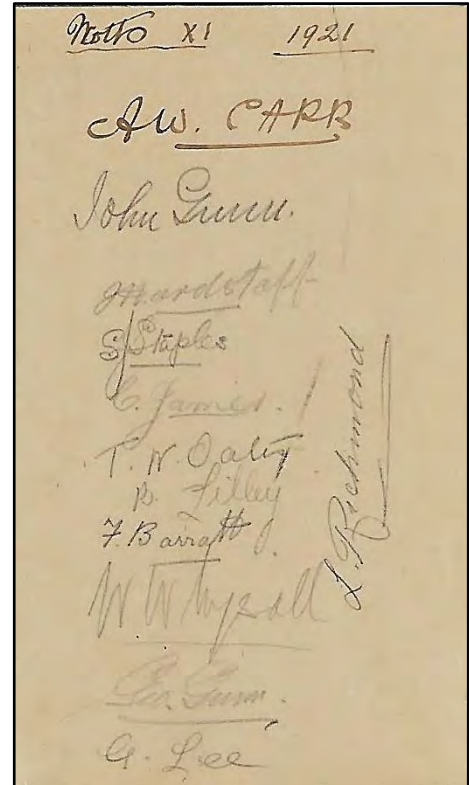 Notts XI 1921
A.W. CARR
John Gunn.
J Hardstaff
S J Staples
C. James.
T. W. Oates
B. Lilley
F. Barratt
W W Whysall
Geo. Gunn.
G. Lee
L. Richmond